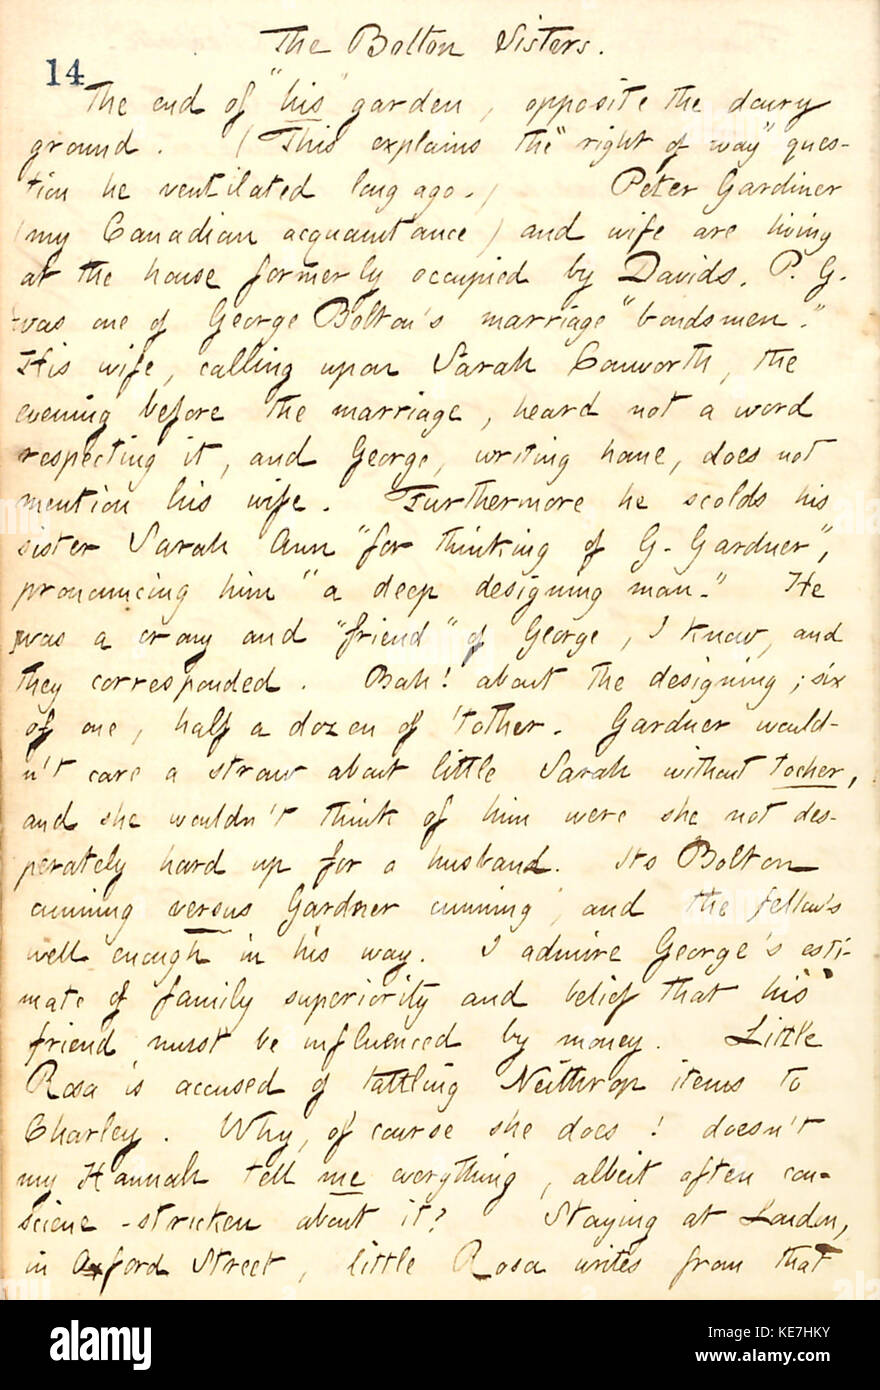 The Bolton Sisters.
14
The end of "his" garden, opposite the dairy
ground. (This explains the "right of way" ques-
tion he ventilated long ago.) Peter Gardiner
(my Canadian acquaintance) and wife are living
at the house formerly occupied by Davids. P. G.
was one of George Bolton's marriage "bondsmen."
His wife, calling upon Sarah Conworth, the
evening before the marriage, heard not a word
respecting it, and George, writing home, does not
mention his wife. Furthermore he scolds his
sister Sarah Ann "for thinking of G. Gardner",
pronouncing him "a deep designing man." He
was a crony and "friend" of George, I know, and
they corresponded. Bah! about the designing; six
of one, half a dozen of 'tother. Gardner would-
n't care a straw about little Sarah without tocher,
and she wouldn't think of him were she not des-
perately hard up for a husband. Its Bolton
cunning versus Gardner cunning, and the fellow's
well enough in his way. I admire George's esti-
mate of family superiority and belief that his
friend must be influenced by money. Little
Rosa is accused of tattling Neithrop items to
Charley. Why, of course she does! doesn't
my Hannah tell me everything, albeit often con-
science-stricken about it? Staying at London,
in Oxford Street, little Rosa writes from that
alamy
Image ID: KE7HKY
www.alamy.com